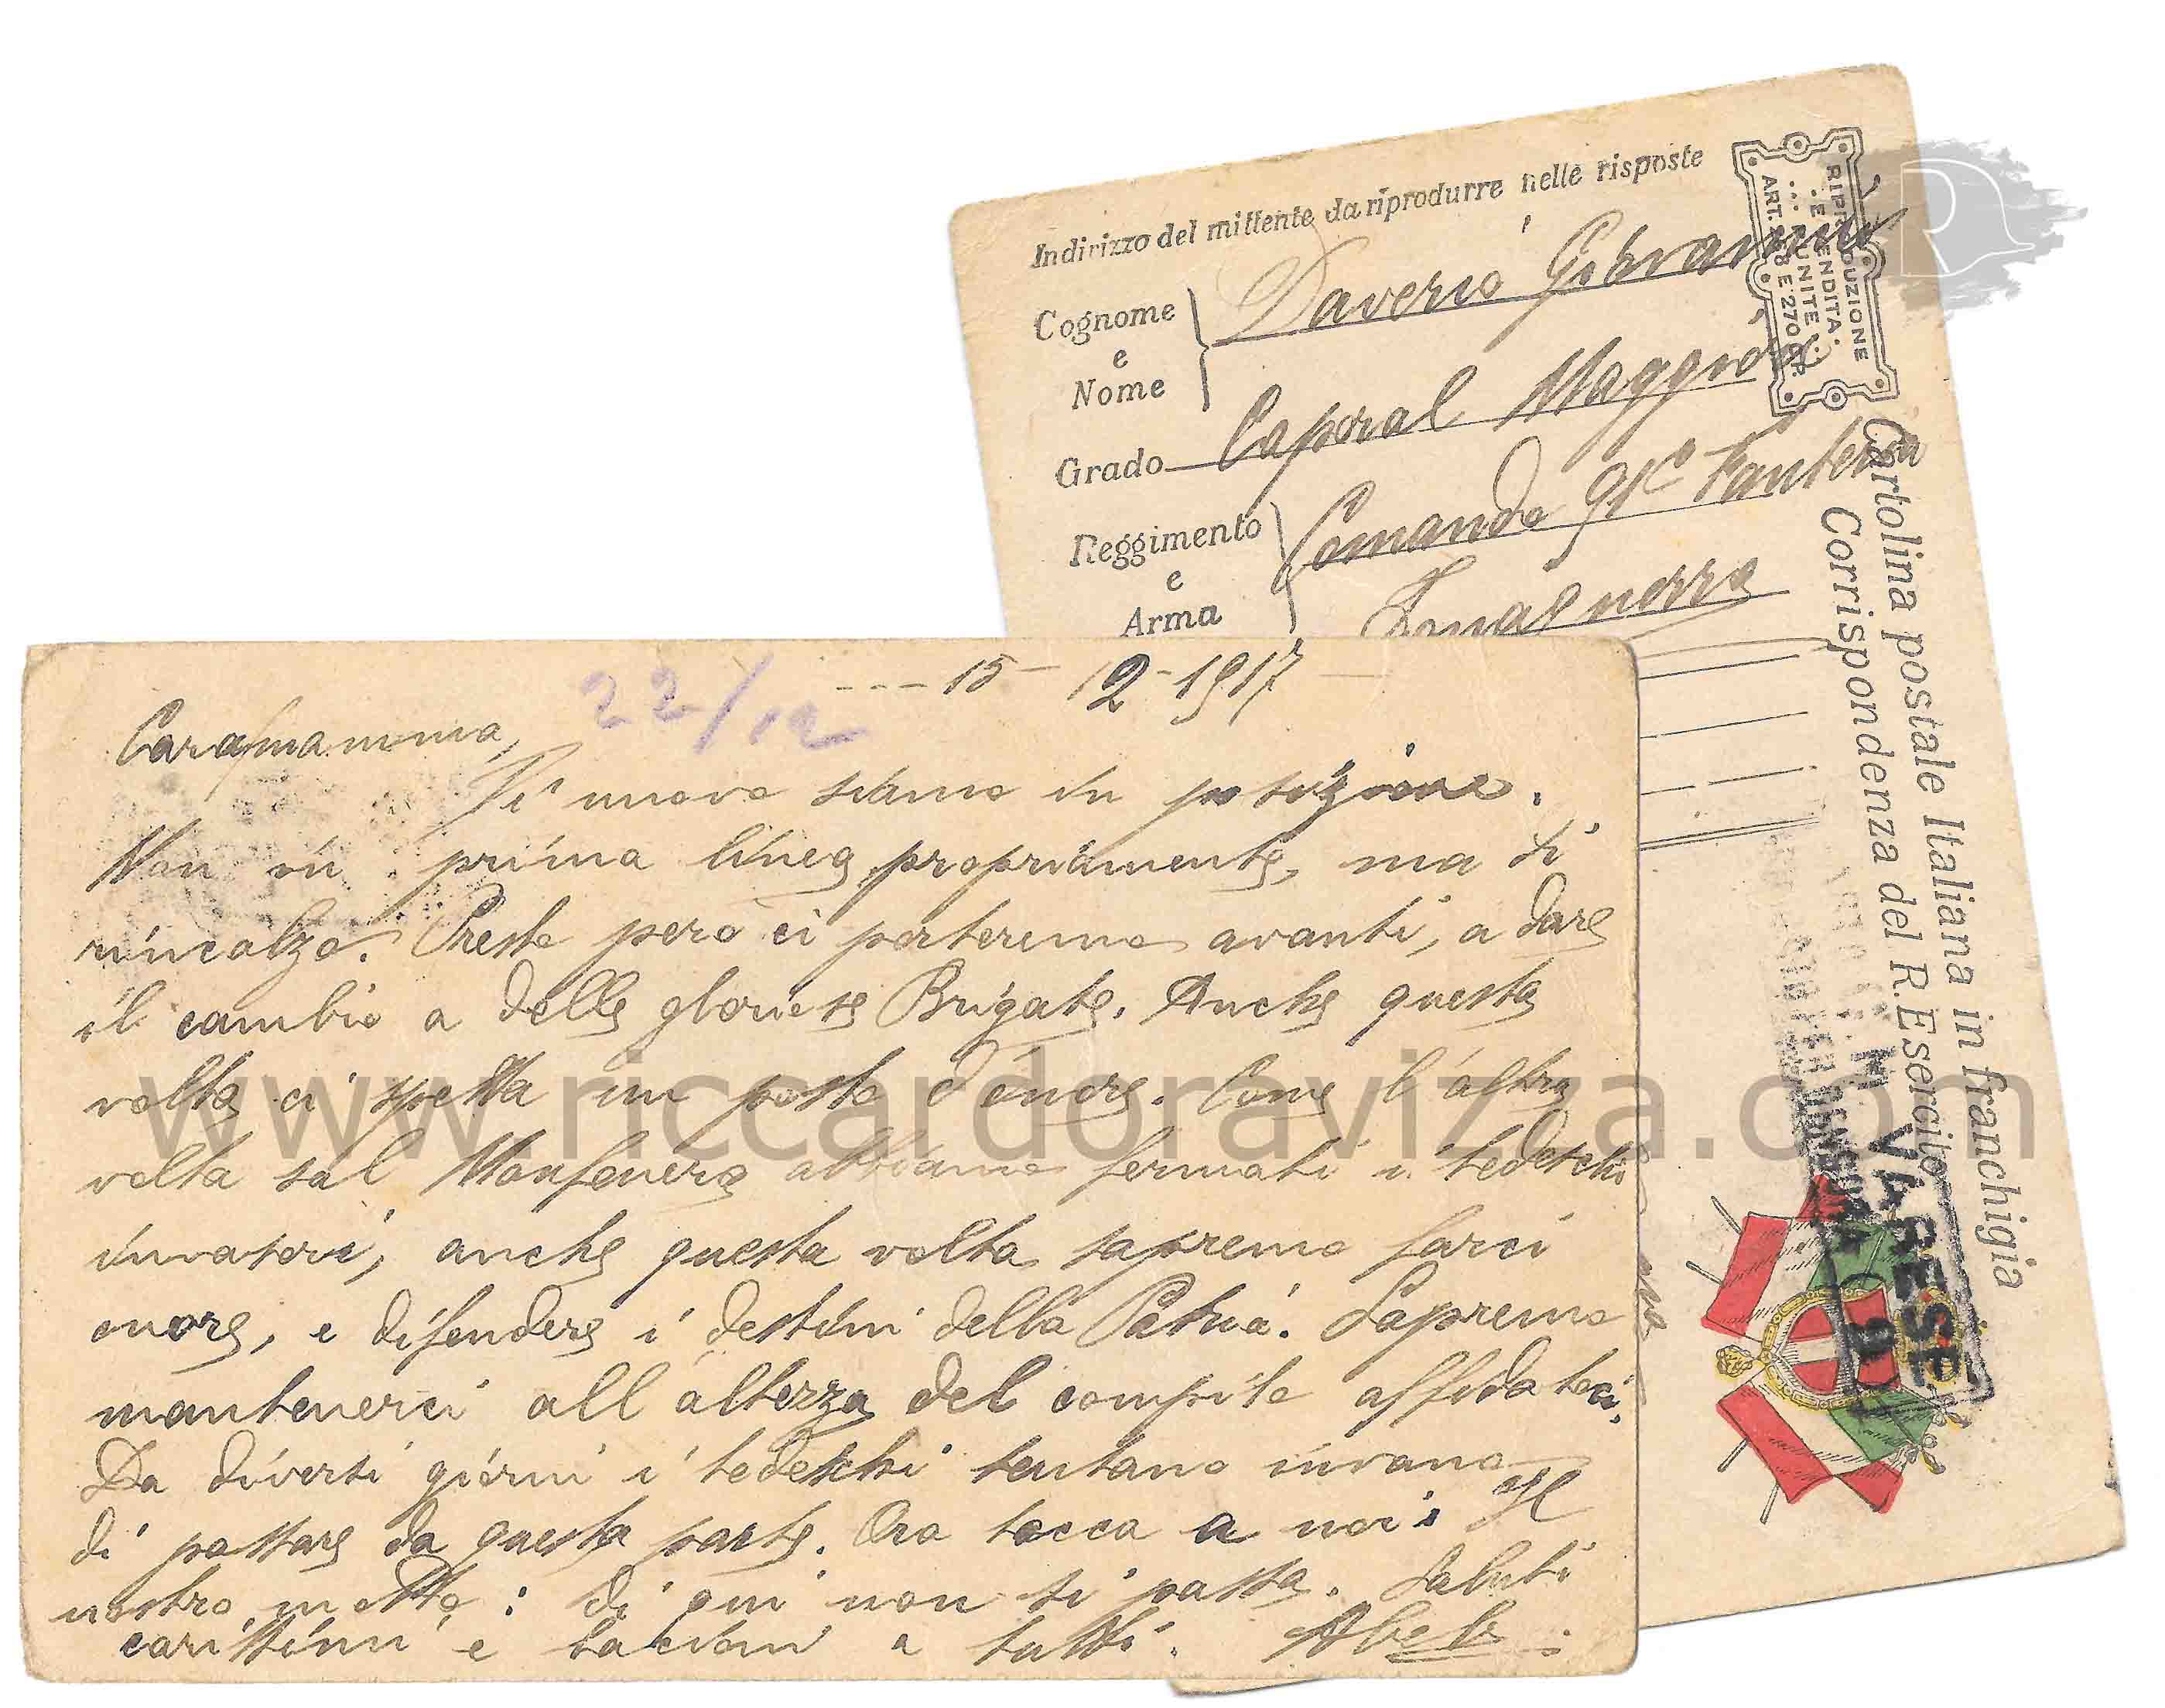 Indirizzo del mittente da riprodurre nelle risposte
Cognome
e
Nome
Daverio Giovanni
Grado Caporal Maggiore
Reggimento
e
Arma
Comando 91° Fanteria
Zona guerra
RIPRODUZIONE
E VENDITA
PUNITE
ART. 268 E 270 C.P.
Cartolina postale Italiana in franchigia
Corrispondenza del R. Esercito
VARESE
www.riccardoravizza.com
22/12
15-12-1917
Cara mamma,
Di nuovo siamo in posizione.
Non in prima linea propriamente, ma di
rincalzo. Presto però ci porteremo avanti, a dare
il cambio a delle gloriose Brigate. Anche questa
volta ci spetta un posto d'onore. Come l'altra
volta sul Monfenera abbiamo fermati i tedeschi
invasori, anche questa volta sapremo farci
onore, e difendere i destini della Patria. Sapremo
mantenerci all'altezza del compito affidatoci.
Da diversi giorni i tedeschi tentano invano
di passare da questa parte. Ora tocca a noi: Il
nostro motto: di qui non si passa. Saluti
carissimi e bacioni a tutti.